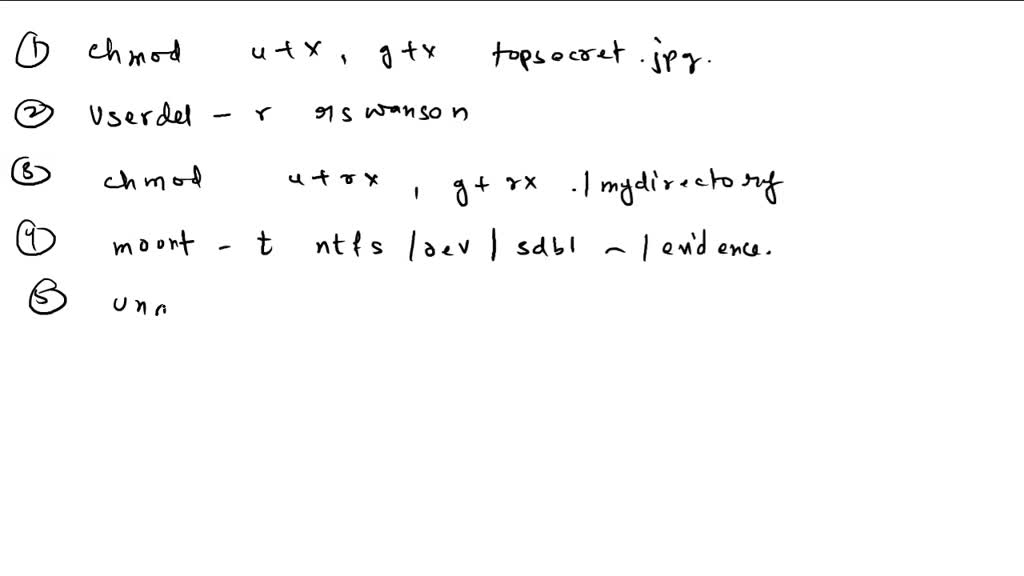 ① chmod u+x, g+x topsocret.jpg.
② Userdel - r rswanson
③ chmod u+rx, g+rx ./mydirectory
④ moont - t ntfs /dev/sdb1 ~/evidence.
⑤ un